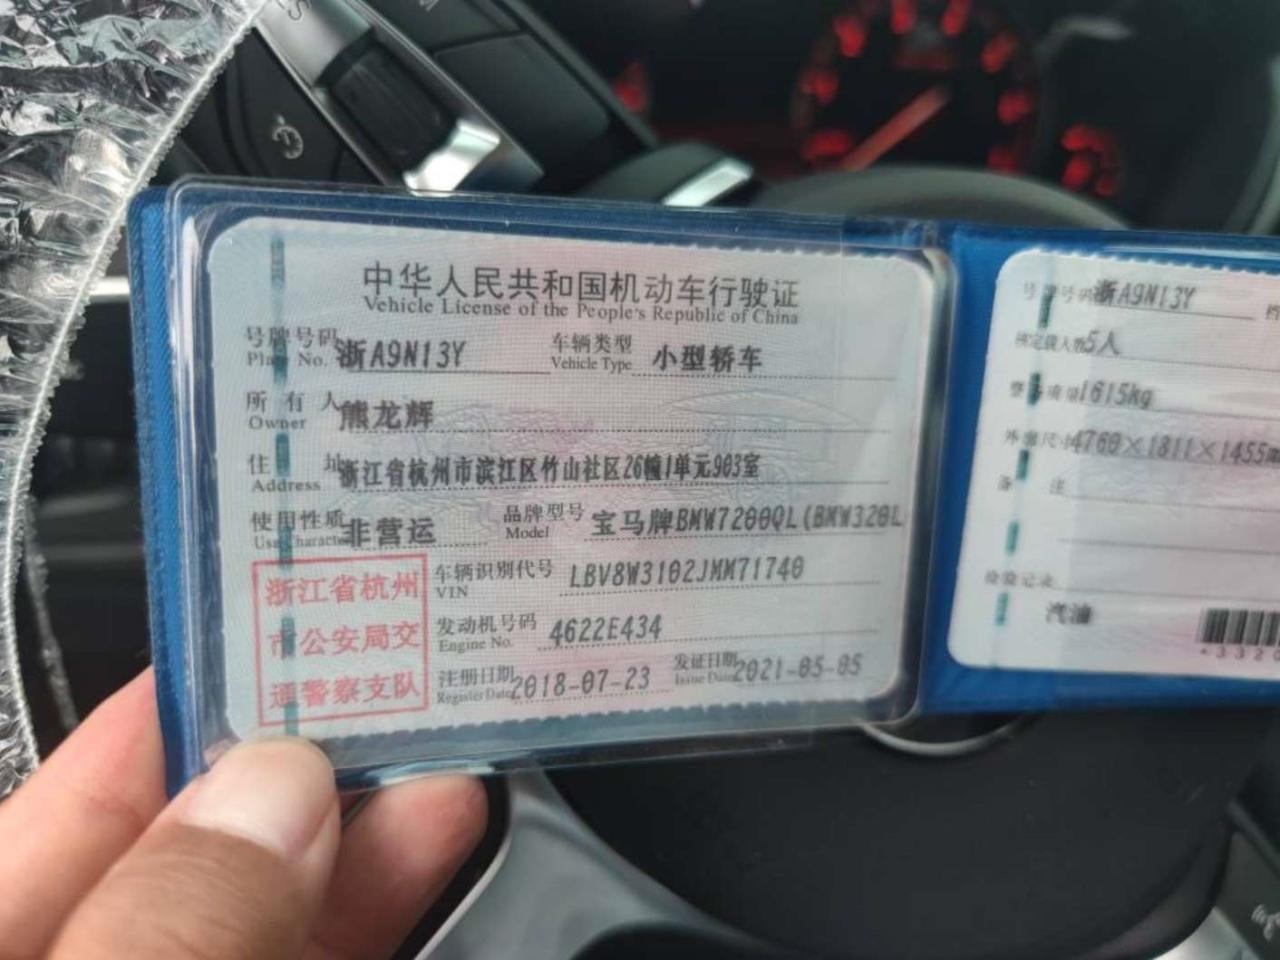 中华人民共和国机动车行驶证
Vehicle License of the People's Republic of China
号牌号码 浙A9N13Y 车辆类型 小型轿车
Plate No. Vehicle Type
所有人 熊龙辉
Owner
住址 浙江省杭州市滨江区竹山社区26幢1单元903室
Address
使用性质 非营运 品牌型号 宝马牌BMW7200QL(BMW320L
Use Character Model
浙江省杭州
市公安局交
通警察支队
车辆识别代号 LBV8W3102JMM71740
VIN
发动机号码 4622E434
Engine No.
注册日期 2018-07-23 发证日期 2021-05-05
Register Date Issue Date
号牌号码 浙A9N13Y
核定载人数 5人
整备质量 1615kg
外廓尺寸 4760×1811×1455
备注
检验记录
汽油
*3320